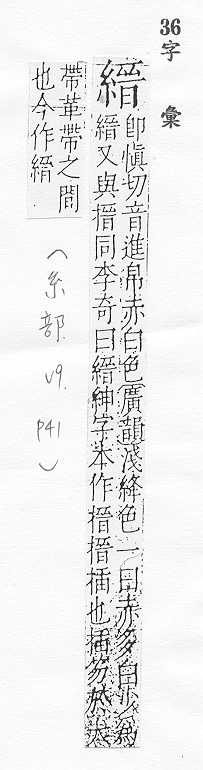 36
字彙
縉 即愼切音進帛赤白色廣韻淺絳色一曰赤多白少爲
縉又與搢同李奇曰縉紳字本作搢搢插也插笏於大
帶革帶之間
也今作縉
(糸部 V9. P41)